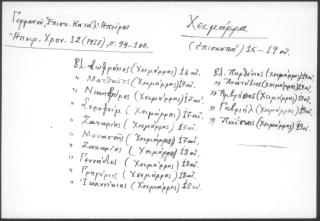 Γερμανοῦ, Ἐπισκ. Κατάλ. Ἠπείρου
Ἠπειρ. Χρον. 12 (1937), σ. 99-100.
Χειμάρρα
(ἐπισκοπή) 16 - 19 αἰ.
Βλ. Σωφρόνιος (Χειμάρρας) 16 αἰ.
" Ματθαῖος (Χειμάρρας) 17 αἰ.
" Νικηφόρος (Χειμάρρας) 17 αἰ.
" Σεραφείμ (Χειμάρρας) 17 αἰ.
" Ζαχαρίας (Χειμάρρας) 17 αἰ.
" Μανασσῆς (Χειμάρρας) 17 αἰ.
" Ζαχαρίας (Χειμάρρας) 18 αἰ.
" Γεννάδιος (Χειμάρρας) 18 αἰ.
" Γρηγόριος (Χειμάρρας) 18 αἰ.
" Ἰωαννίκιος (Χειμάρρας) 18 αἰ.
Βλ. Παρθένιος (Χειμάρρας)
" (Χειμάρρας)
" Ἀμβρόσιος (Χειμάρρας)
" Γαβριήλ (Χειμάρρας)
" Παΐσιος (Χειμάρρας)